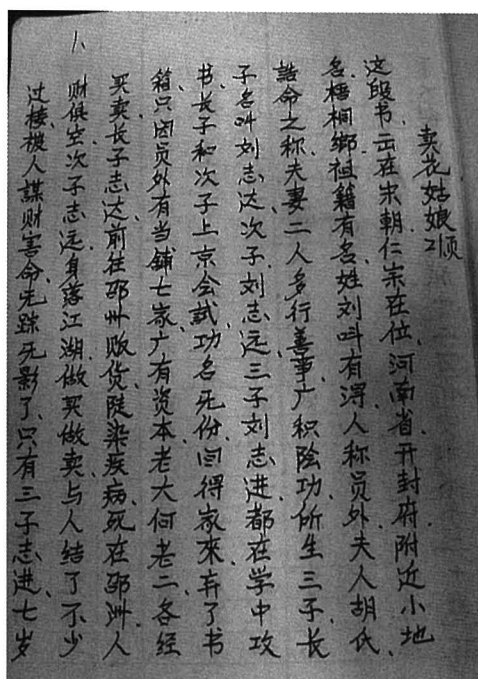 卖花姑娘21页
这段书、出在宋朝仁宗在位、河南省开封府附近小地
名、梧桐乡、祖籍有名、姓刘叫有得、人称员外、夫人胡氏、
诰命之称、夫妻二人多行善事、广积陰功、所生三子、长
子名叫刘志达、次子刘志远、三子刘志进、都在学中攻
书、长子和次子上京会试、功名无份、回得家来、弃了书
箱、只因员外有当铺七家、广有资本、老大何老二、各经
买卖、长子志达、前往邵州贩货、陡染疾病、死在邵洲、人
财俱空、次子志远、身落江湖、做买做卖、与人结了不少
过接、被人謀财害命、无踪无影了、只有三子志进、七岁
1、